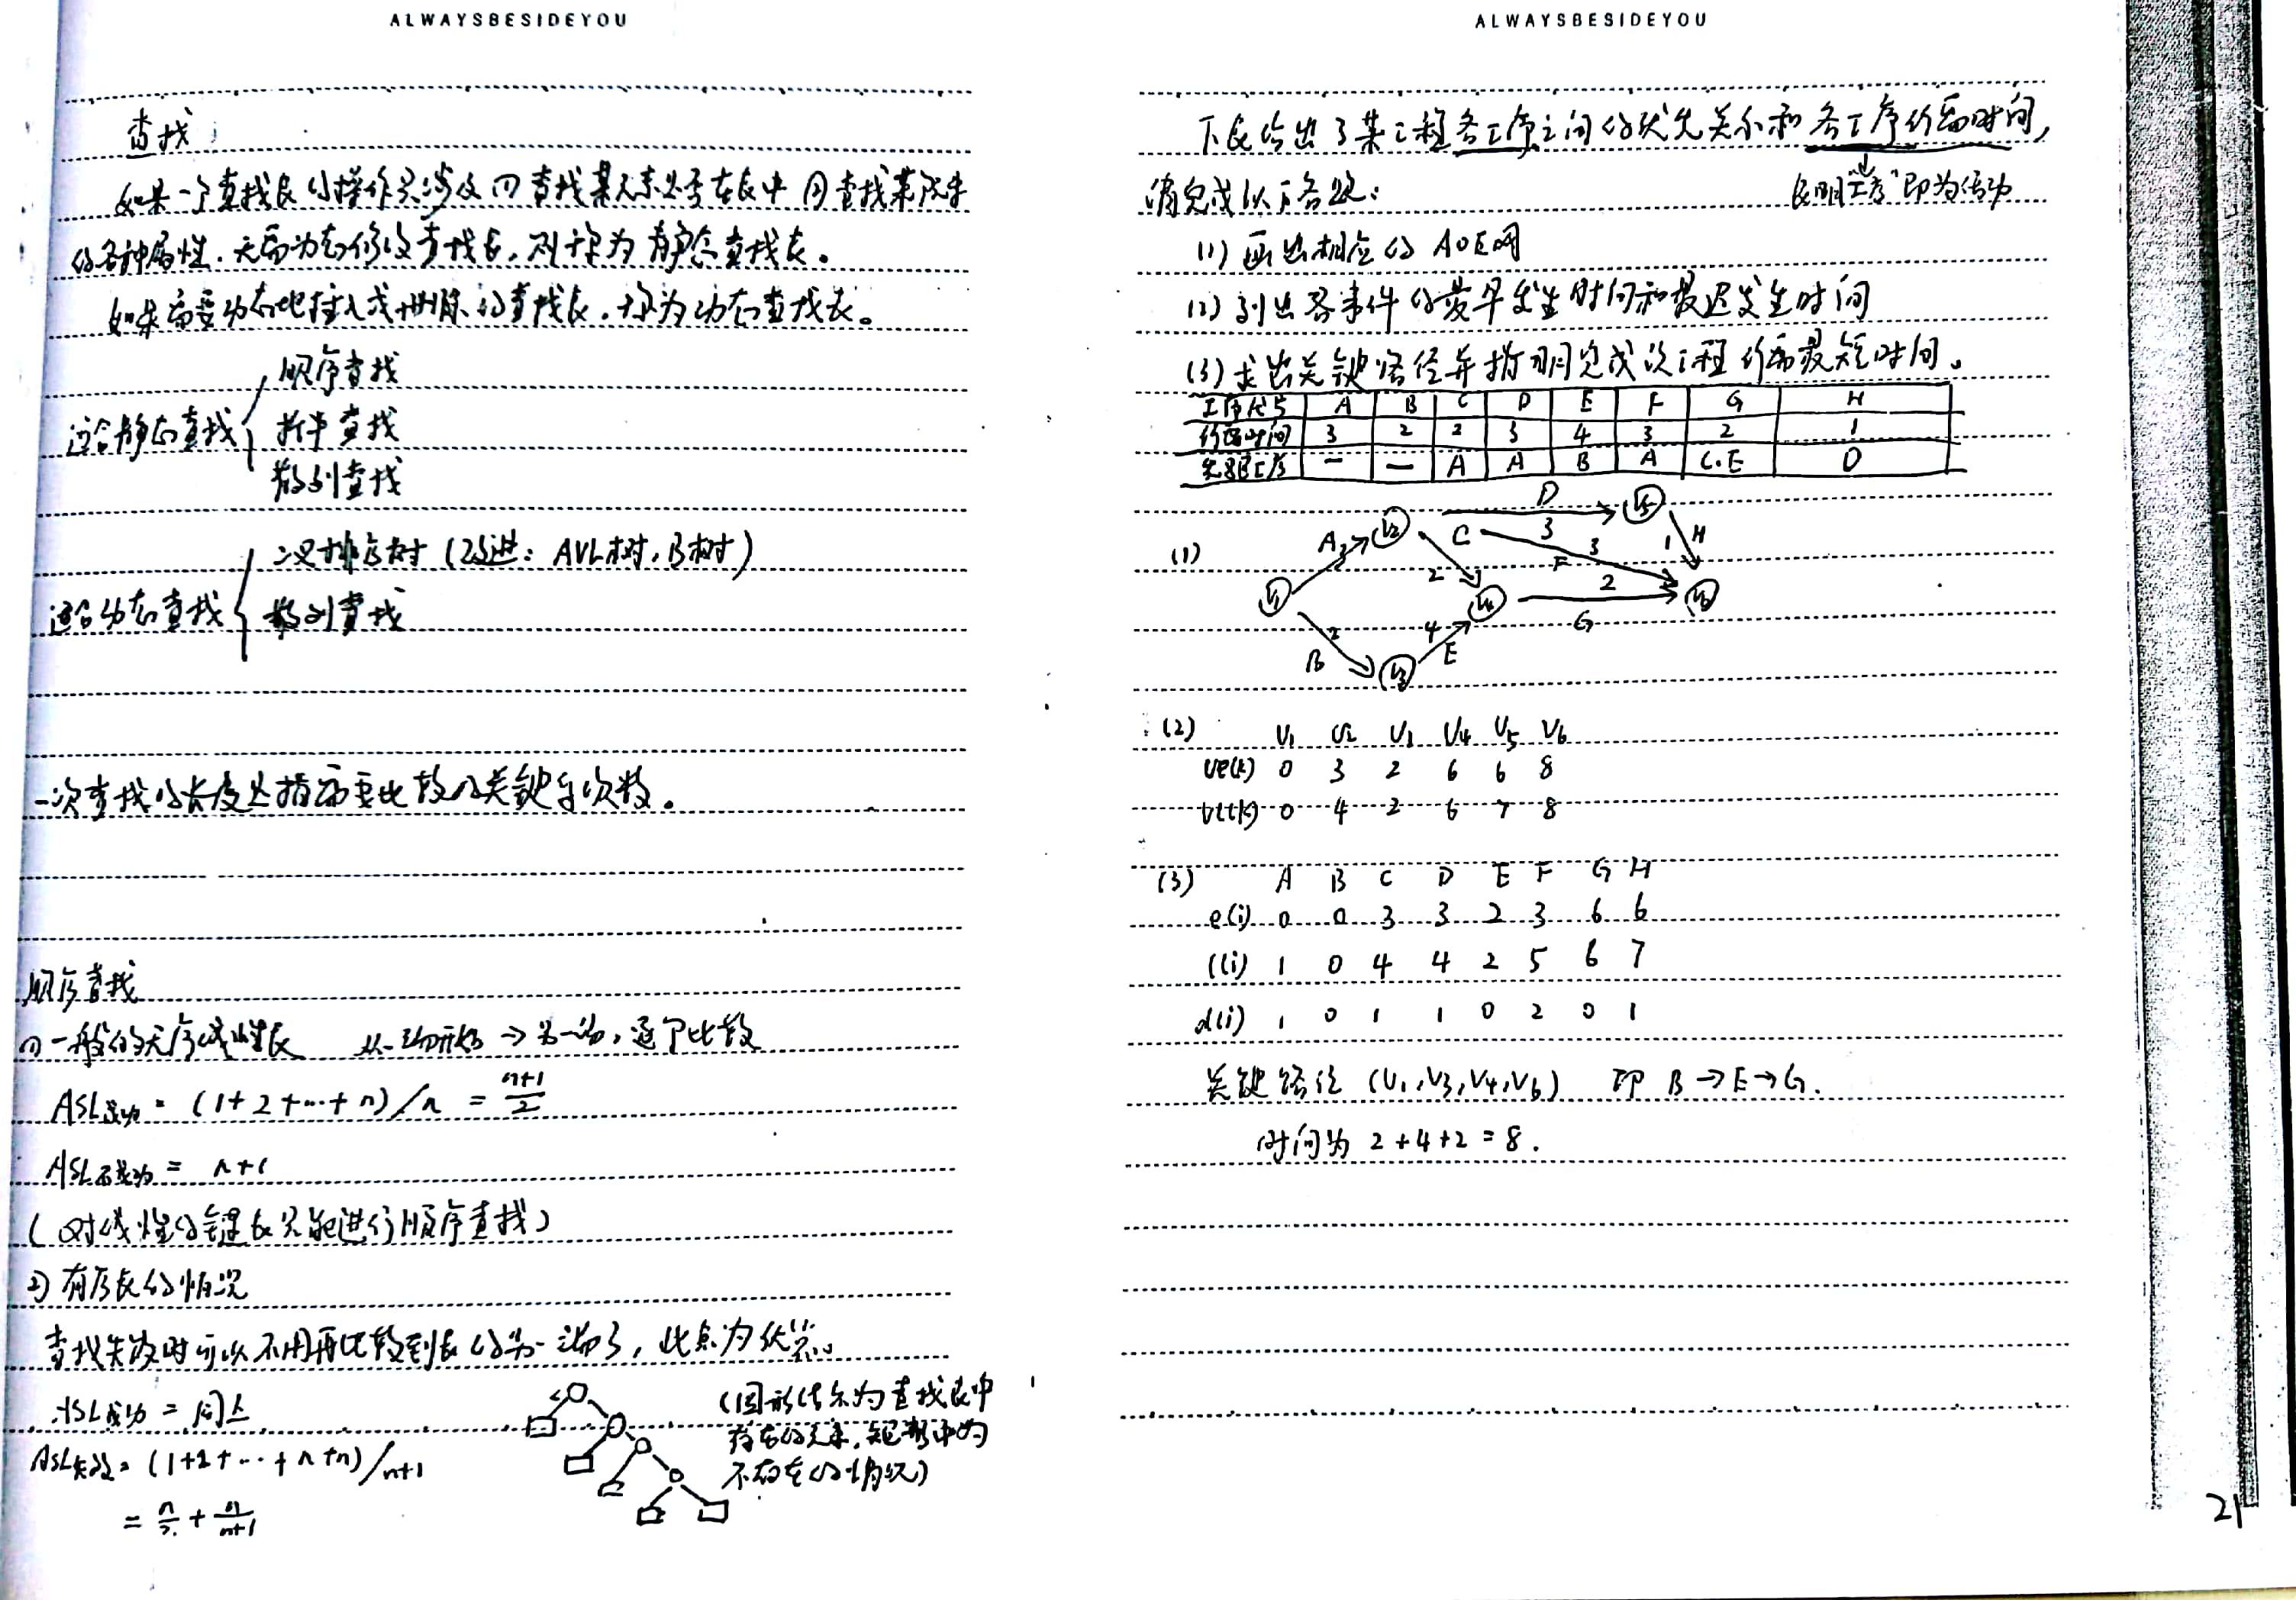 ALWAYSBESIDEYOU
查找
如果一个查找表的操作只涉及 ①查找某元素是否在表中 ②查找某元素
的各种属性，无需动态修改查找表，则称为静态查找表。
如果需要动态地插入或删除的查找表，称为动态查找表。
适合静态查找
顺序查找
折半查找
散列查找
适合动态查找
二叉排序树 (改进: AVL树, B树)
散列查找
一次查找的长度是指需要比较的关键字次数。
顺序查找
1) 一般的无序线性表 从一端开始 → 另一端, 逐个比较
ASL成功 = (1+2+…+n)/n = n+1/2
ASL不成功 = n+1
(对线性的链表只能进行顺序查找)
2) 有序表的情况
查找失败时可以不用再比较到表的另一端了, 此点为优点。
ASL成功 = 同上
ASL失败 = (1+2+…+n+n)/n+1
= n/2 + n/n+1
(圆形结点为查找表中
存在的元素, 矩形中为
不存在的情况)
ALWAYSBESIDEYOU
下表给出了某工程各工序之间的优先关系和各工序所需时间,
表明"工序"即为活动
请完成以下各题:
(1) 画出相应的AOE网
(2) 列出各事件的最早发生时间和最迟发生时间
(3) 求出关键路径并指明完成该工程所需最短时间。
工序代号 A B C D E F G H
所需时间 3 2 2 3 4 3 2 1
先驱工序 — — A A B A C.E D
(1)
A 3 V2 C D 3 V5 H 1
V1 2 F 3 2 V6
B 2 V3 4 E V4 G
(2) V1 V2 V3 V4 V5 V6
ve(k) 0 3 2 6 6 8
vl(k) 0 4 2 6 7 8
(3) A B C D E F G H
e(i) 0 0 3 3 2 3 6 6
l(i) 1 0 4 4 2 5 6 7
d(i) 1 0 1 1 0 2 0 1
关键路径 (V1,V3,V4,V6) 即 B→E→G.
时间为 2+4+2=8.
21